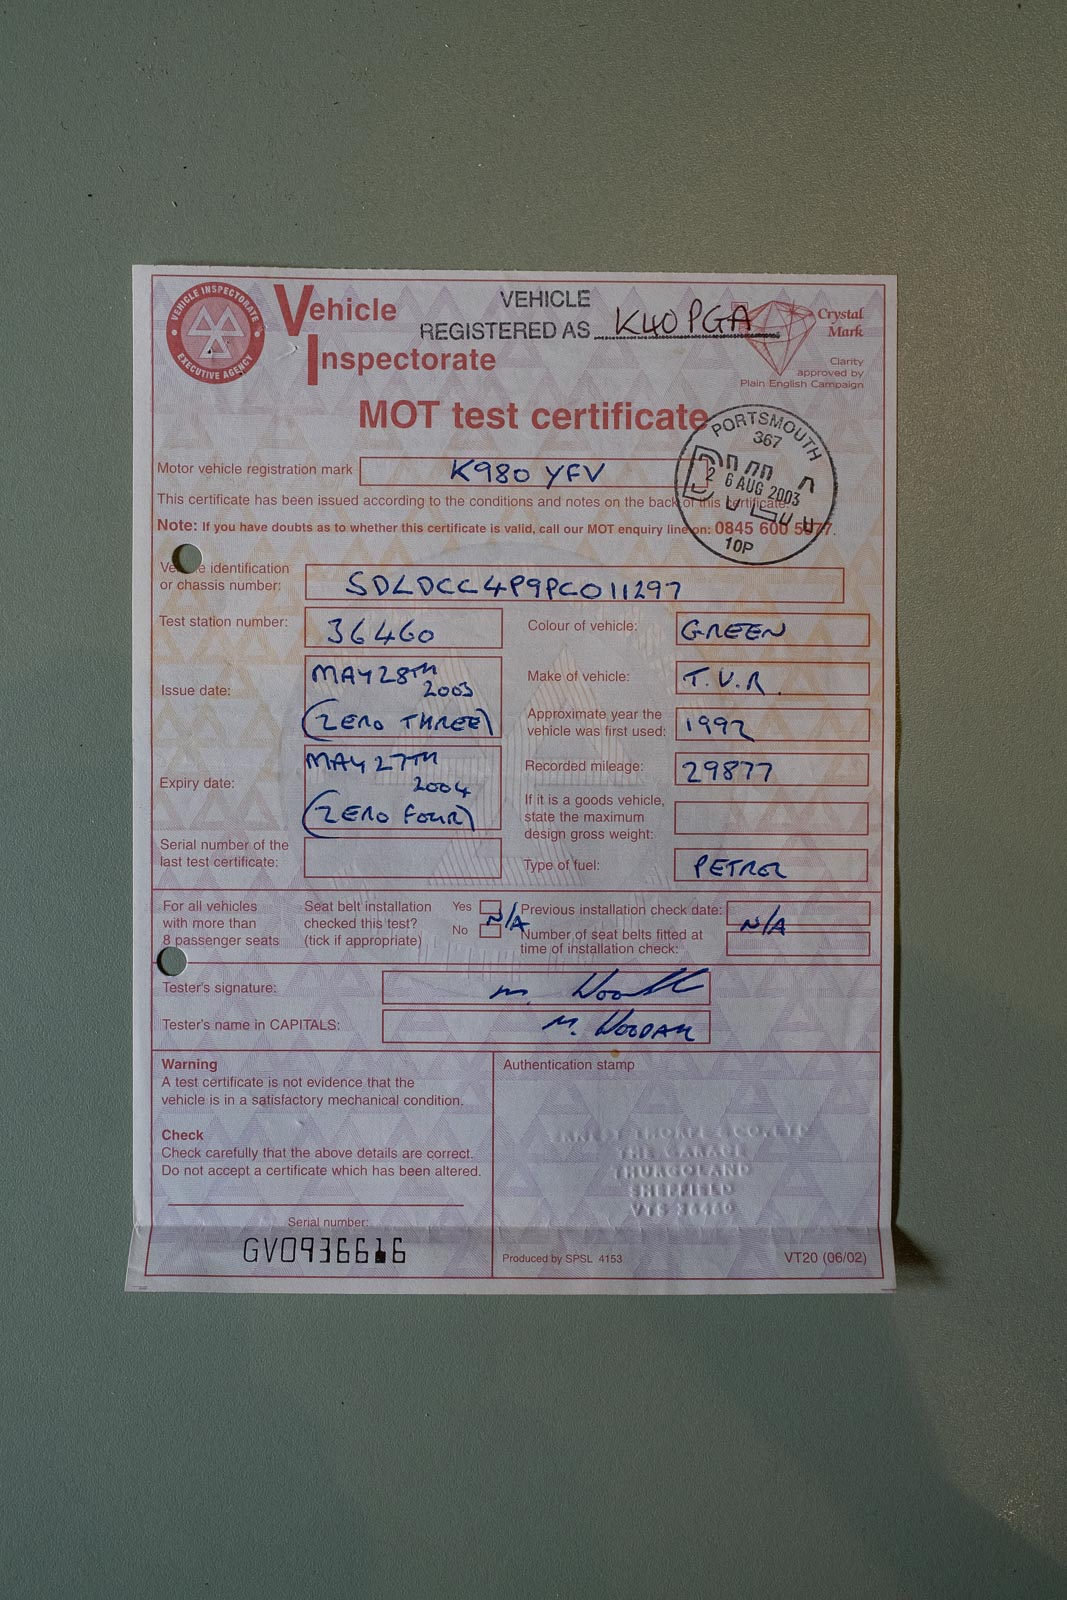 VEHICLE INSPECTORATE
EXECUTIVE AGENCY
Vehicle
Inspectorate
VEHICLE
REGISTERED AS K40 PGA
Crystal
Mark
Clarity
approved by
Plain English Campaign
MOT test certificate
PORTSMOUTH
367
26 AUG 2003
10P
Motor vehicle registration mark K980 YFV
This certificate has been issued according to the conditions and notes on the back of this certificate.
Note: If you have doubts as to whether this certificate is valid, call our MOT enquiry line on: 0845 600 5977.
Vehicle identification
or chassis number: SDLDCC4P9PC011297
Test station number: 36460
Colour of vehicle: GREEN
Issue date: MAY 28TH
2003
(ZERO THREE)
Make of vehicle: T.V.R.
Approximate year the
vehicle was first used: 1992
Expiry date: MAY 27TH
2004
(ZERO FOUR)
Recorded mileage: 29877
If it is a goods vehicle,
state the maximum
design gross weight:
Serial number of the
last test certificate:
Type of fuel: PETROL
For all vehicles
with more than
8 passenger seats
Seat belt installation
checked this test?
(tick if appropriate)
Yes
No
N/A
Previous installation check date:
Number of seat belts fitted at
time of installation check:
N/A
Tester's signature:
Tester's name in CAPITALS: M.
Warning
A test certificate is not evidence that the
vehicle is in a satisfactory mechanical condition.
Check
Check carefully that the above details are correct.
Do not accept a certificate which has been altered.
Serial number:
GV0936616
Authentication stamp
ERNEST THORPE & CO. LTD
THE GARAGE
THURGOLAND
SHEFFIELD
VTS 36460
Produced by SPSL 4153
VT20 (06/02)